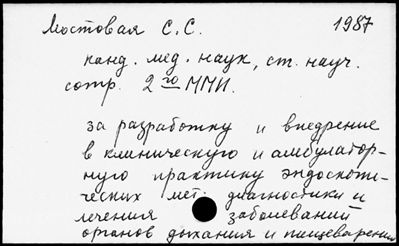 Мостовая С.С. 1987
канд. мед. наук, ст. науч.
сотр. 2го ММИ.
за разработку и внедрение
в клиническую и амбулатор-
ную практику эндоскопи-
ческих мет. диагностики и
лечения заболеваний
органов дыхания и пищеварения